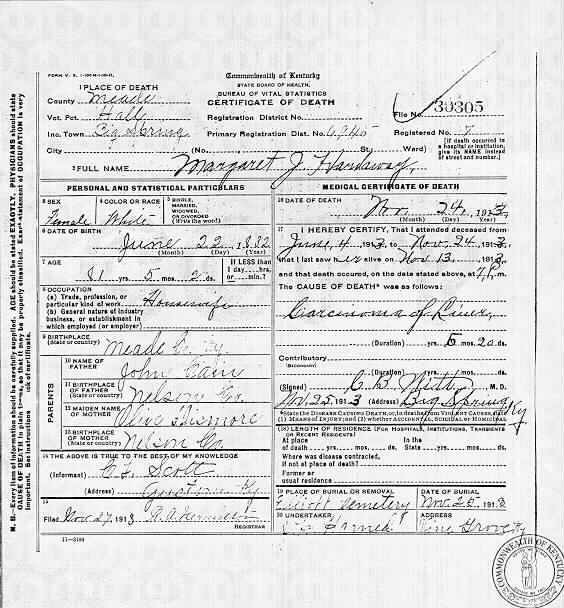 FORM V. S.
Commonwealth of Kentucky
STATE BOARD OF HEALTH
BUREAU OF VITAL STATISTICS
CERTIFICATE OF DEATH
1 PLACE OF DEATH
County Meade
Vot. Pct. Hall
Inc. Town Big Spring
City (No. St.; Ward)
Registration District No.
Primary Registration Dist. No. 6940
File No. 30305
Registered No. 7
(If death occurred in a hospital or institution, give its NAME instead of street and number.)
2 FULL NAME Margaret J. Hardaway,
PERSONAL AND STATISTICAL PARTICULARS
3 SEX Female
4 COLOR OR RACE White
5 SINGLE, MARRIED, WIDOWED, OR DIVORCED (Write the word)
6 DATE OF BIRTH
June 22, 1832
(Month) (Day) (Year)
7 AGE
81 yrs. 5 mos. 2 ds.
If LESS than 1 day....hrs. or....min.?
8 OCCUPATION
(a) Trade, profession, or particular kind of work Housewife
(b) General nature of industry business, or establishment in which employed (or employer)
9 BIRTHPLACE
Meade Co Ky
PARENTS
10 NAME OF FATHER John Cain
11 BIRTHPLACE OF FATHER Nelson Co.
12 MAIDEN NAME OF MOTHER
13 BIRTHPLACE OF MOTHER Nelson Co.
14 THE ABOVE IS TRUE TO THE BEST OF MY KNOWLEDGE
(Informant) Scott
(Address) Ky
15
Filed Nov. 27, 1913
REGISTRAR
11-3184
MEDICAL CERTIFICATE OF DEATH
16 DATE OF DEATH
Nov. 24, 1913
(Month) (Day) (Year)
17 I HEREBY CERTIFY, That I attended deceased from
June, 4 1913, to Nov. 24 1913,
that I last saw her alive on Nov 13, 1913,
and that death occurred, on the date stated above, at 7 P. m.
The CAUSE OF DEATH* was as follows:
Carcinoma of Liver,
(Duration) yrs. 5 mos. 20 ds.
Contributory
(SECONDARY)
(Duration) yrs. mos. ds.
(Signed) M. D.
Nov. 25, 1913 (Address) Big Spring Ky
*State the DISEASE CAUSING DEATH, or, in deaths from VIOLENT CAUSES, state (1) MEANS OF INJURY; and (2) whether ACCIDENTAL, SUICIDAL or HOMICIDAL
18 LENGTH OF RESIDENCE (FOR HOSPITALS, INSTITUTIONS, TRANSIENTS OR RECENT RESIDENTS)
At place of death yrs. mos. ds. In the State yrs. mos. ds.
Where was disease contracted, if not at place of death?
Former or usual residence
19 PLACE OF BURIAL OR REMOVAL
Cemetery
DATE OF BURIAL
Nov. 25, 1913
20 UNDERTAKER
ADDRESS
Grove Ky
N. B.—Every item of information should be carefully supplied. AGE should be stated EXACTLY. PHYSICIANS should state
CAUSE OF DEATH in plain terms, so that it may be properly classified. Exact statement of OCCUPATION is very
important. See instructions of certificate.
COMMONWEALTH OF KENTUCKY